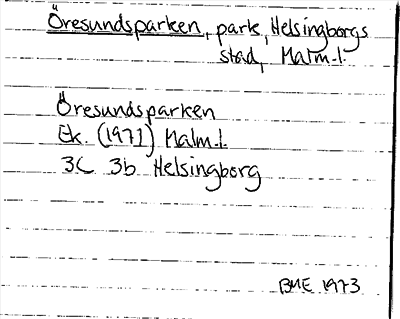 Öresundsparken, park, Helsingborgs
stad, Malm.l.
Öresundsparken
Ek. (1971) Malm.l.
3C 3b Helsingborg
BME 1973